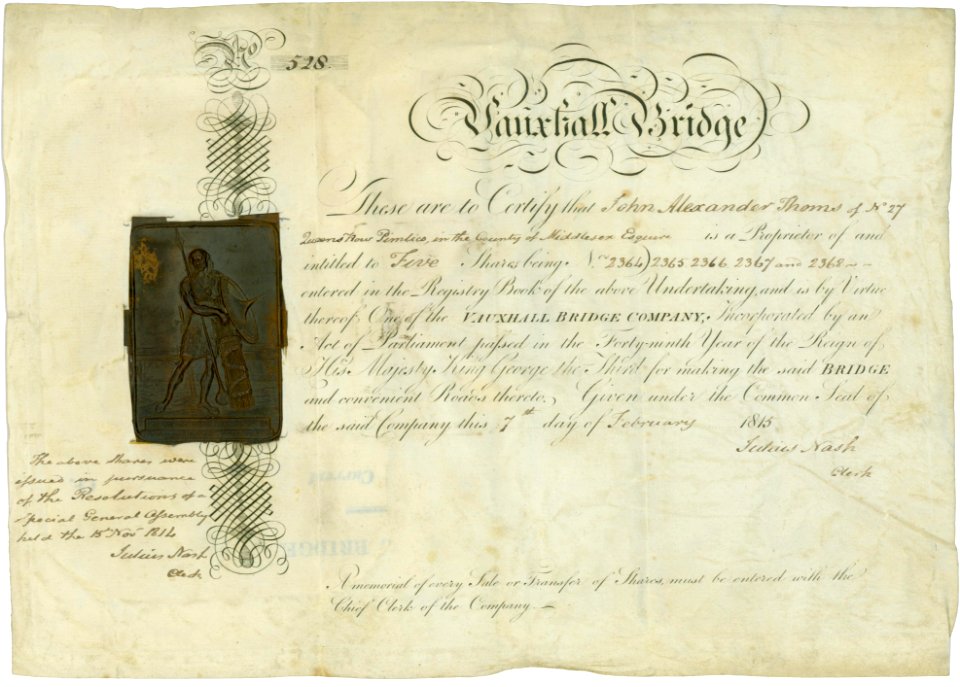 No 528.
Vauxhall Bridge
These are to Certify that John Alexander Thoms of No 27
Queens Row Pimlico, in the County of Middlesex Esquire is a Proprietor of and
intitled to Five Shares being Nos 2364) 2365 2366 2367 and 2368
entered in the Registry Book of the above Undertaking, and is by Virtue
thereof, One of the VAUXHALL BRIDGE COMPANY, Incorporated by an
Act of Parliament passed in the Forty-ninth Year of the Reign of
His Majesty King George the Third for making the said BRIDGE
and convenient Roads thereto, Given under the Common Seal of
the said Company this 7th day of February 1815
Julius Nash
Clerk
The above Shares were
issued in pursuance
of the Resolutions of a
Special General Assembly
held the 15 Nov 1814
Julius Nash
Clerk
A memorial of every Sale or Transfer of Shares, must be entered with the
Chief Clerk of the Company.